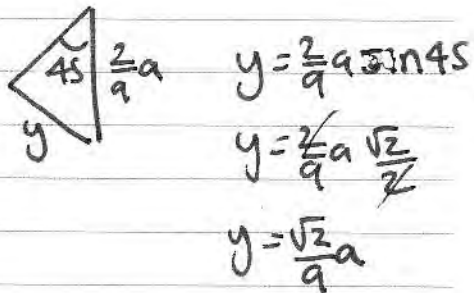 45
2/9 a
y
y = 2/9 a sin 45
y = 2/9 a √2/2
y = √2/9 a